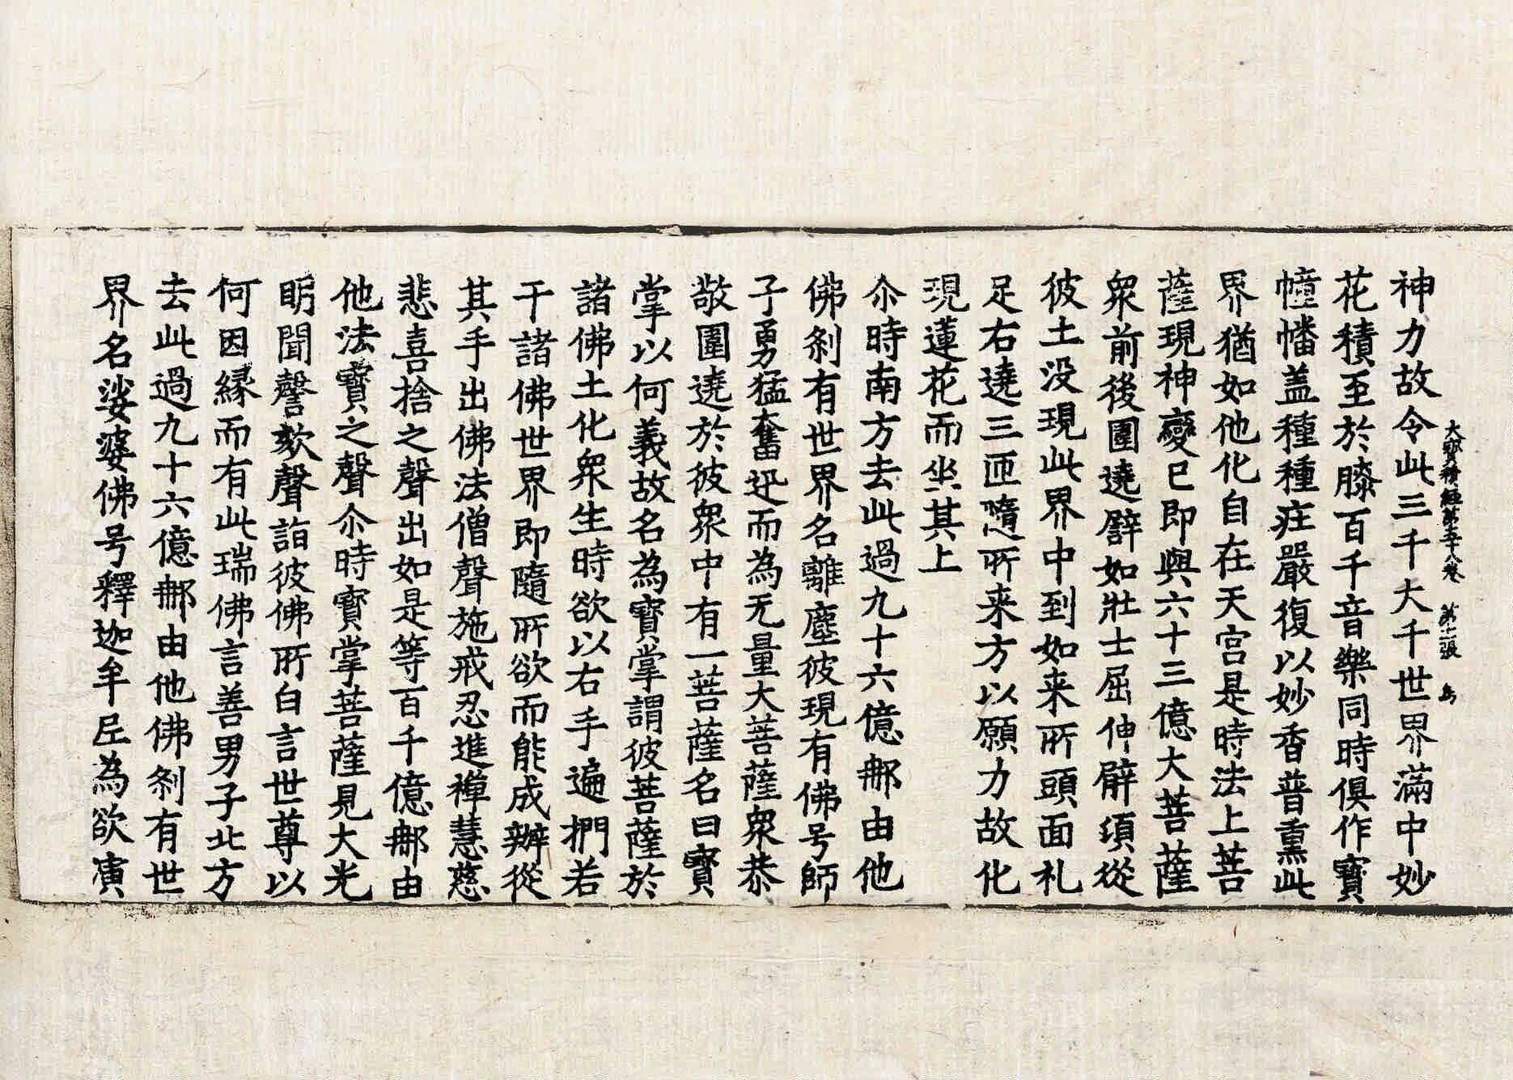 大寳積經第五十八卷 第十一張 鳥
神力故令此三千大千世界滿中妙
花積至於膝百千音樂同時俱作寳
幢幡盖種種㽵嚴復以妙香普熏此
界猶如他化自在天宫是時法上菩
薩現神變已即與六十三億大菩薩
衆前後圍遶譬如壯士屈伸臂湏從
彼土没現此界中到如来所頭面礼
足右遶三匝隨所来方以願力故化
現蓮花而坐其上
尒時南方去此過九十六億那由他
佛刹有世界名離塵彼現有佛号師
子勇猛奮迅而為无量大菩薩衆恭
敬圍遶於彼衆中有一菩薩名曰寳
掌以何義故名為寳掌謂彼菩薩於
諸佛土化衆生時欲以右手遍捫若
干諸佛世界即隨所欲而能成辦從
其手出佛法僧聲施戒忍進禪慧慈
悲喜捨之聲出如是等百千億那由
他法寳之聲尒時寳掌菩薩見大光
明聞謦欬聲詣彼佛所白言世尊以
何因縁而有此瑞佛言善男子北方
去此過九十六億那由他佛刹有世
界名娑婆佛号釋迦牟尼為欲廣